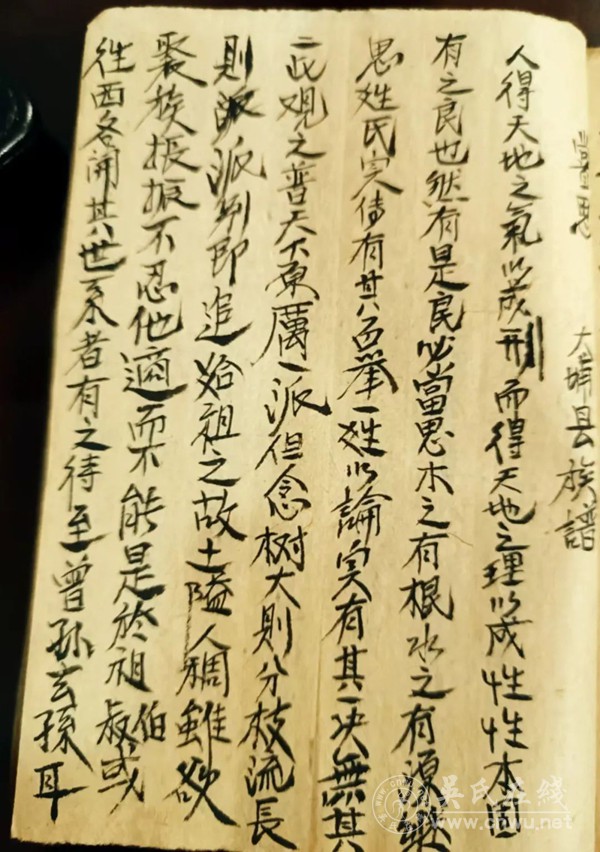 大埔县族譜
人得天地之氣以成形而得天地之理以成性性本固
有之良也然有是民必當思木之有根水之有源
思姓氏实係有其百举一姓以論实有其一决無其
二此观之普天下原属一派但念树大則分枝流長
則派派列即追始祖之故土隘人稠雖欲
聚族振振不忍他適而不能是於祖伯叔或
往西各開其世系者有之待至曾孫玄孫耳
吴氏在线
www.cnwu.net